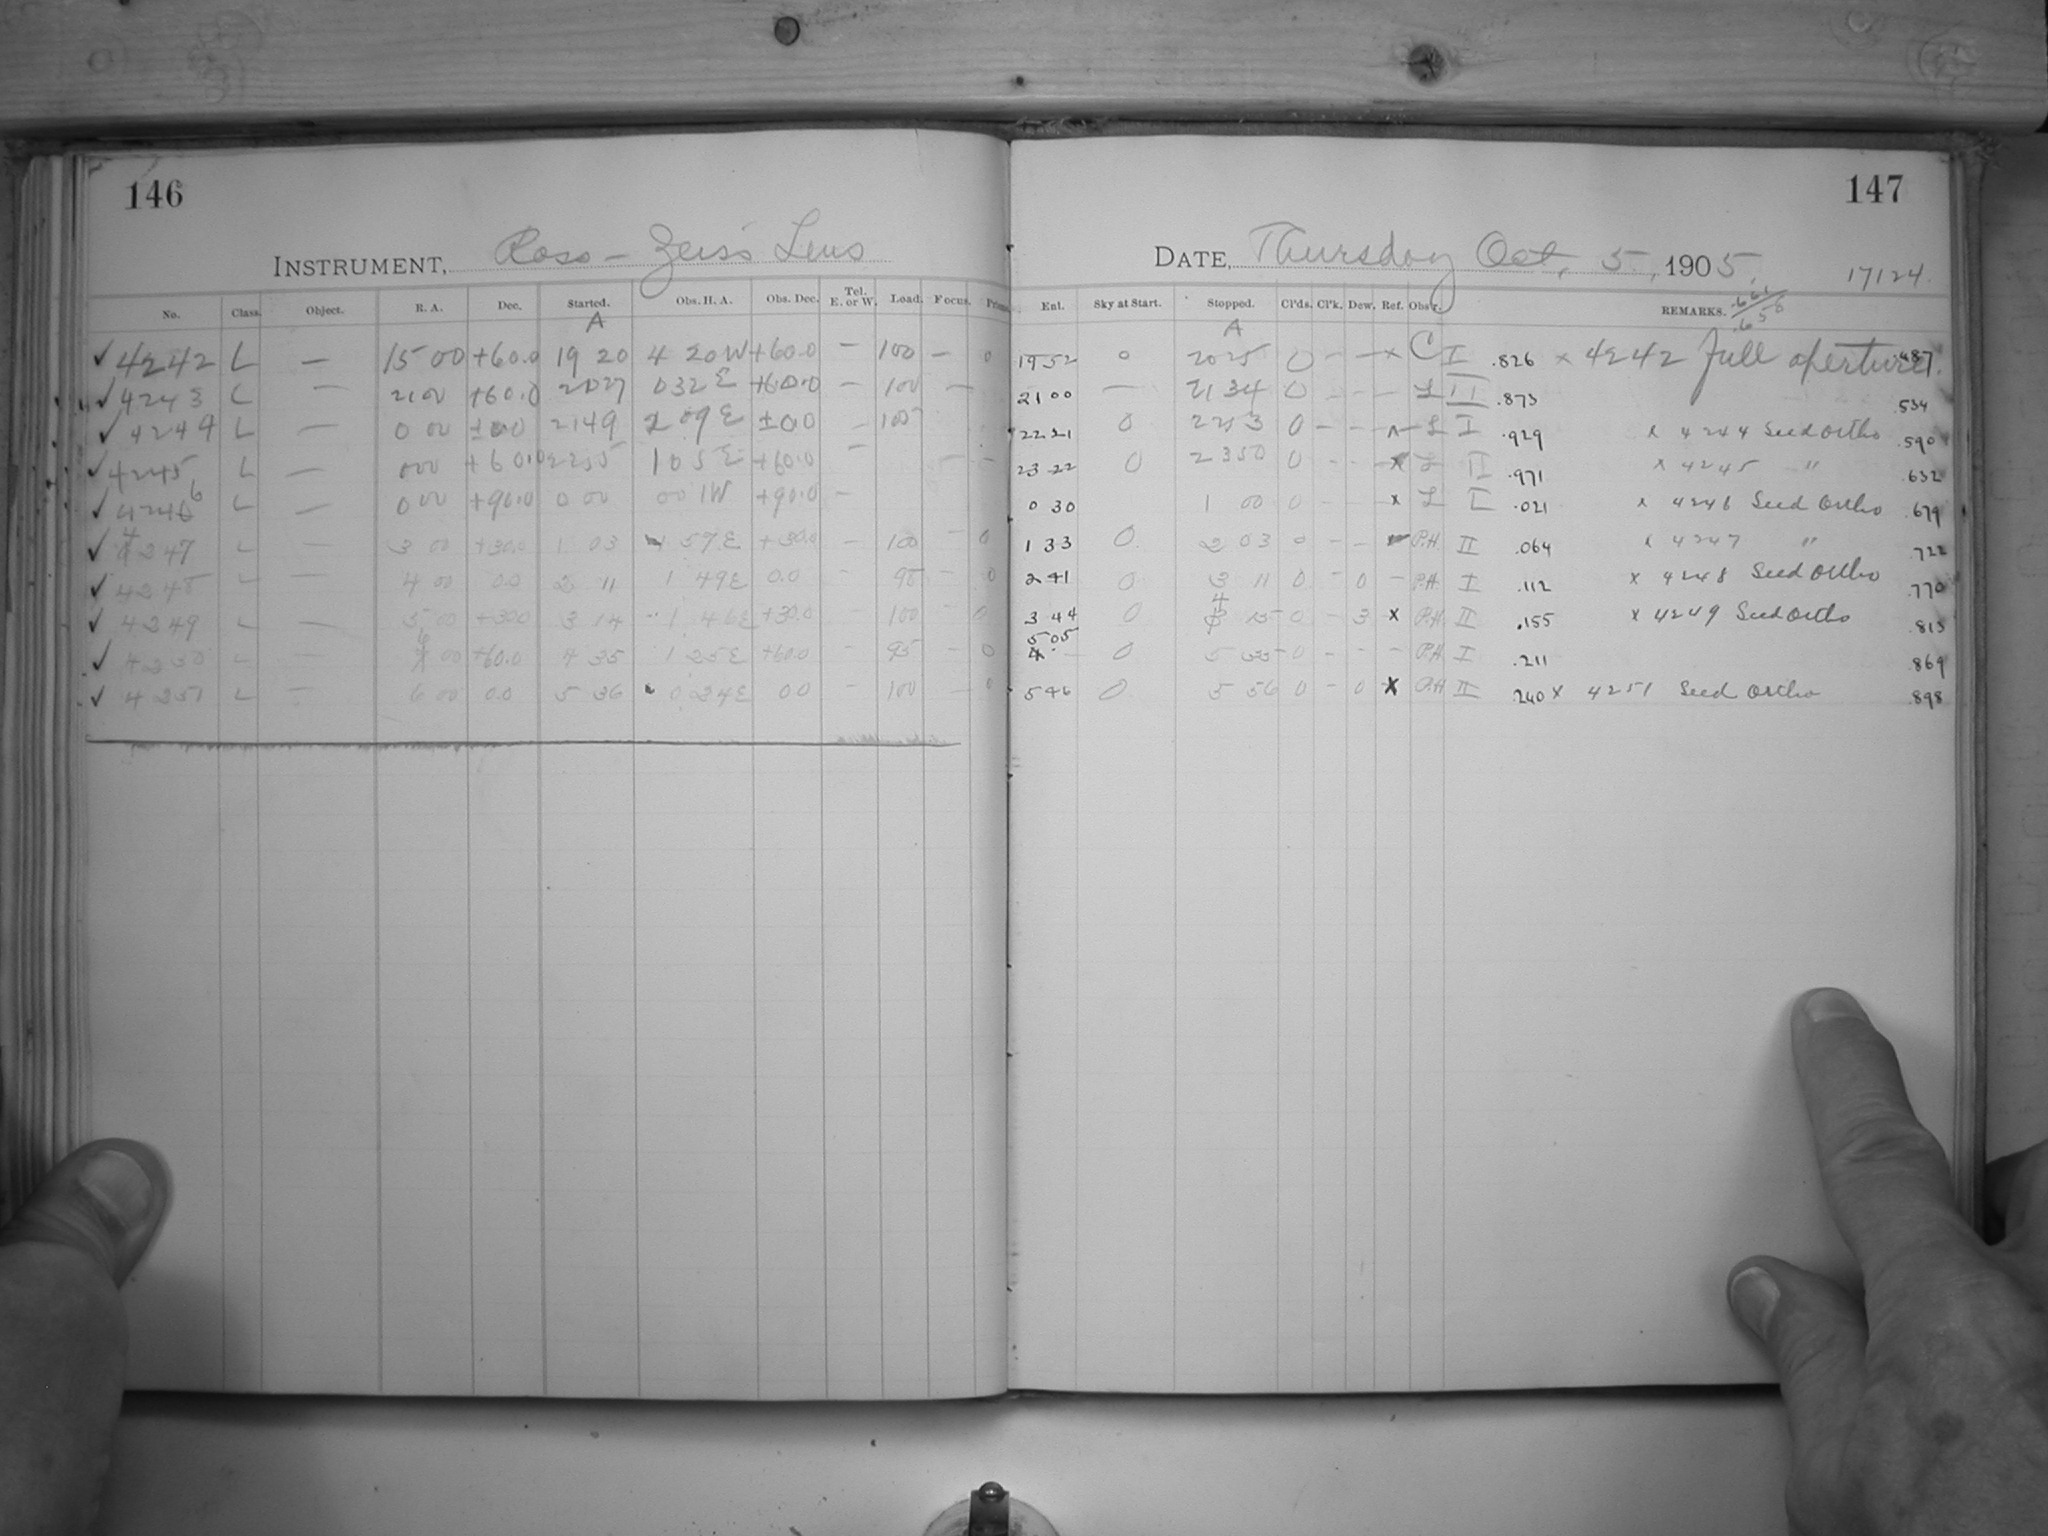 146
INSTRUMENT, Ross-Zeiss Lens
No. Class. Object. R. A. Dec. Started. Obs. H. A. Obs. Dec. Tel. E. or W. Load. Focus.
A
✓ 4242 L — 15 00 +60.0 19 20 4 20 W +60.0 — 100 — 0
✓ 4243 L — 21 00 +60.0 20 27 0 32 E +60.0 — 100 —
✓ 4244 L — 0 00 ±0.0 21 49 2 09 E ±0.0 — 100
✓ 4245 L — 0 00 +60.0 22 55 1 05 E +60.0 —
✓ 4246 L — 0 00 +90.0 0 00 0 01 W +90.0 —
✓ 4247 L — 3 00 +30.0 1 03 1 57 E +30.0 — 100 — 0
✓ 4248 L — 4 00 0.0 2 11 1 49 E 0.0 — 95 — 0
✓ 4249 L — 5 00 +30.0 3 14 1 46 E +30.0 — 100 0
✓ 4250 L — 00 +60.0 4 35 1 25 E +60.0 — 95 — 0
✓ 4251 L — 6 00 0.0 5 36 0 24 E 0.0 — 100 — 0
147
DATE, Thursday Oct. 5, 1905.
17124.
Ent. Sky at Start. Stopped. Cl'ds. Cl'k. Dew. Ref. Obs'r. REMARKS. .661 .656
A
19 52 0 20 25 0 — — x C I .826 x 4242 Full aperture. .487
21 00 — 21 34 0 — — — L II .873 .534
22 21 0 22 53 0 — — L I .929 x 4244 Seed Ortho .590
23 22 0 23 50 0 — — x L II .971 x 4245 " .632
0 30 1 00 0 — — x L I .021 x 4246 Seed Ortho .679
1 33 0 2 03 0 — — P.H. II .064 x 4247 " .722
2 41 0 3 11 0 — 0 — P.H. I .112 x 4248 Seed Ortho .770
3 44 0 4 15 0 — 3 x P.H. II .155 x 4249 Seed Ortho .813
5 05 0 5 35 0 — — — P.H. I .211 .869
5 46 0 5 56 0 — 0 x P.H. II .240 x 4251 Seed Ortho .898